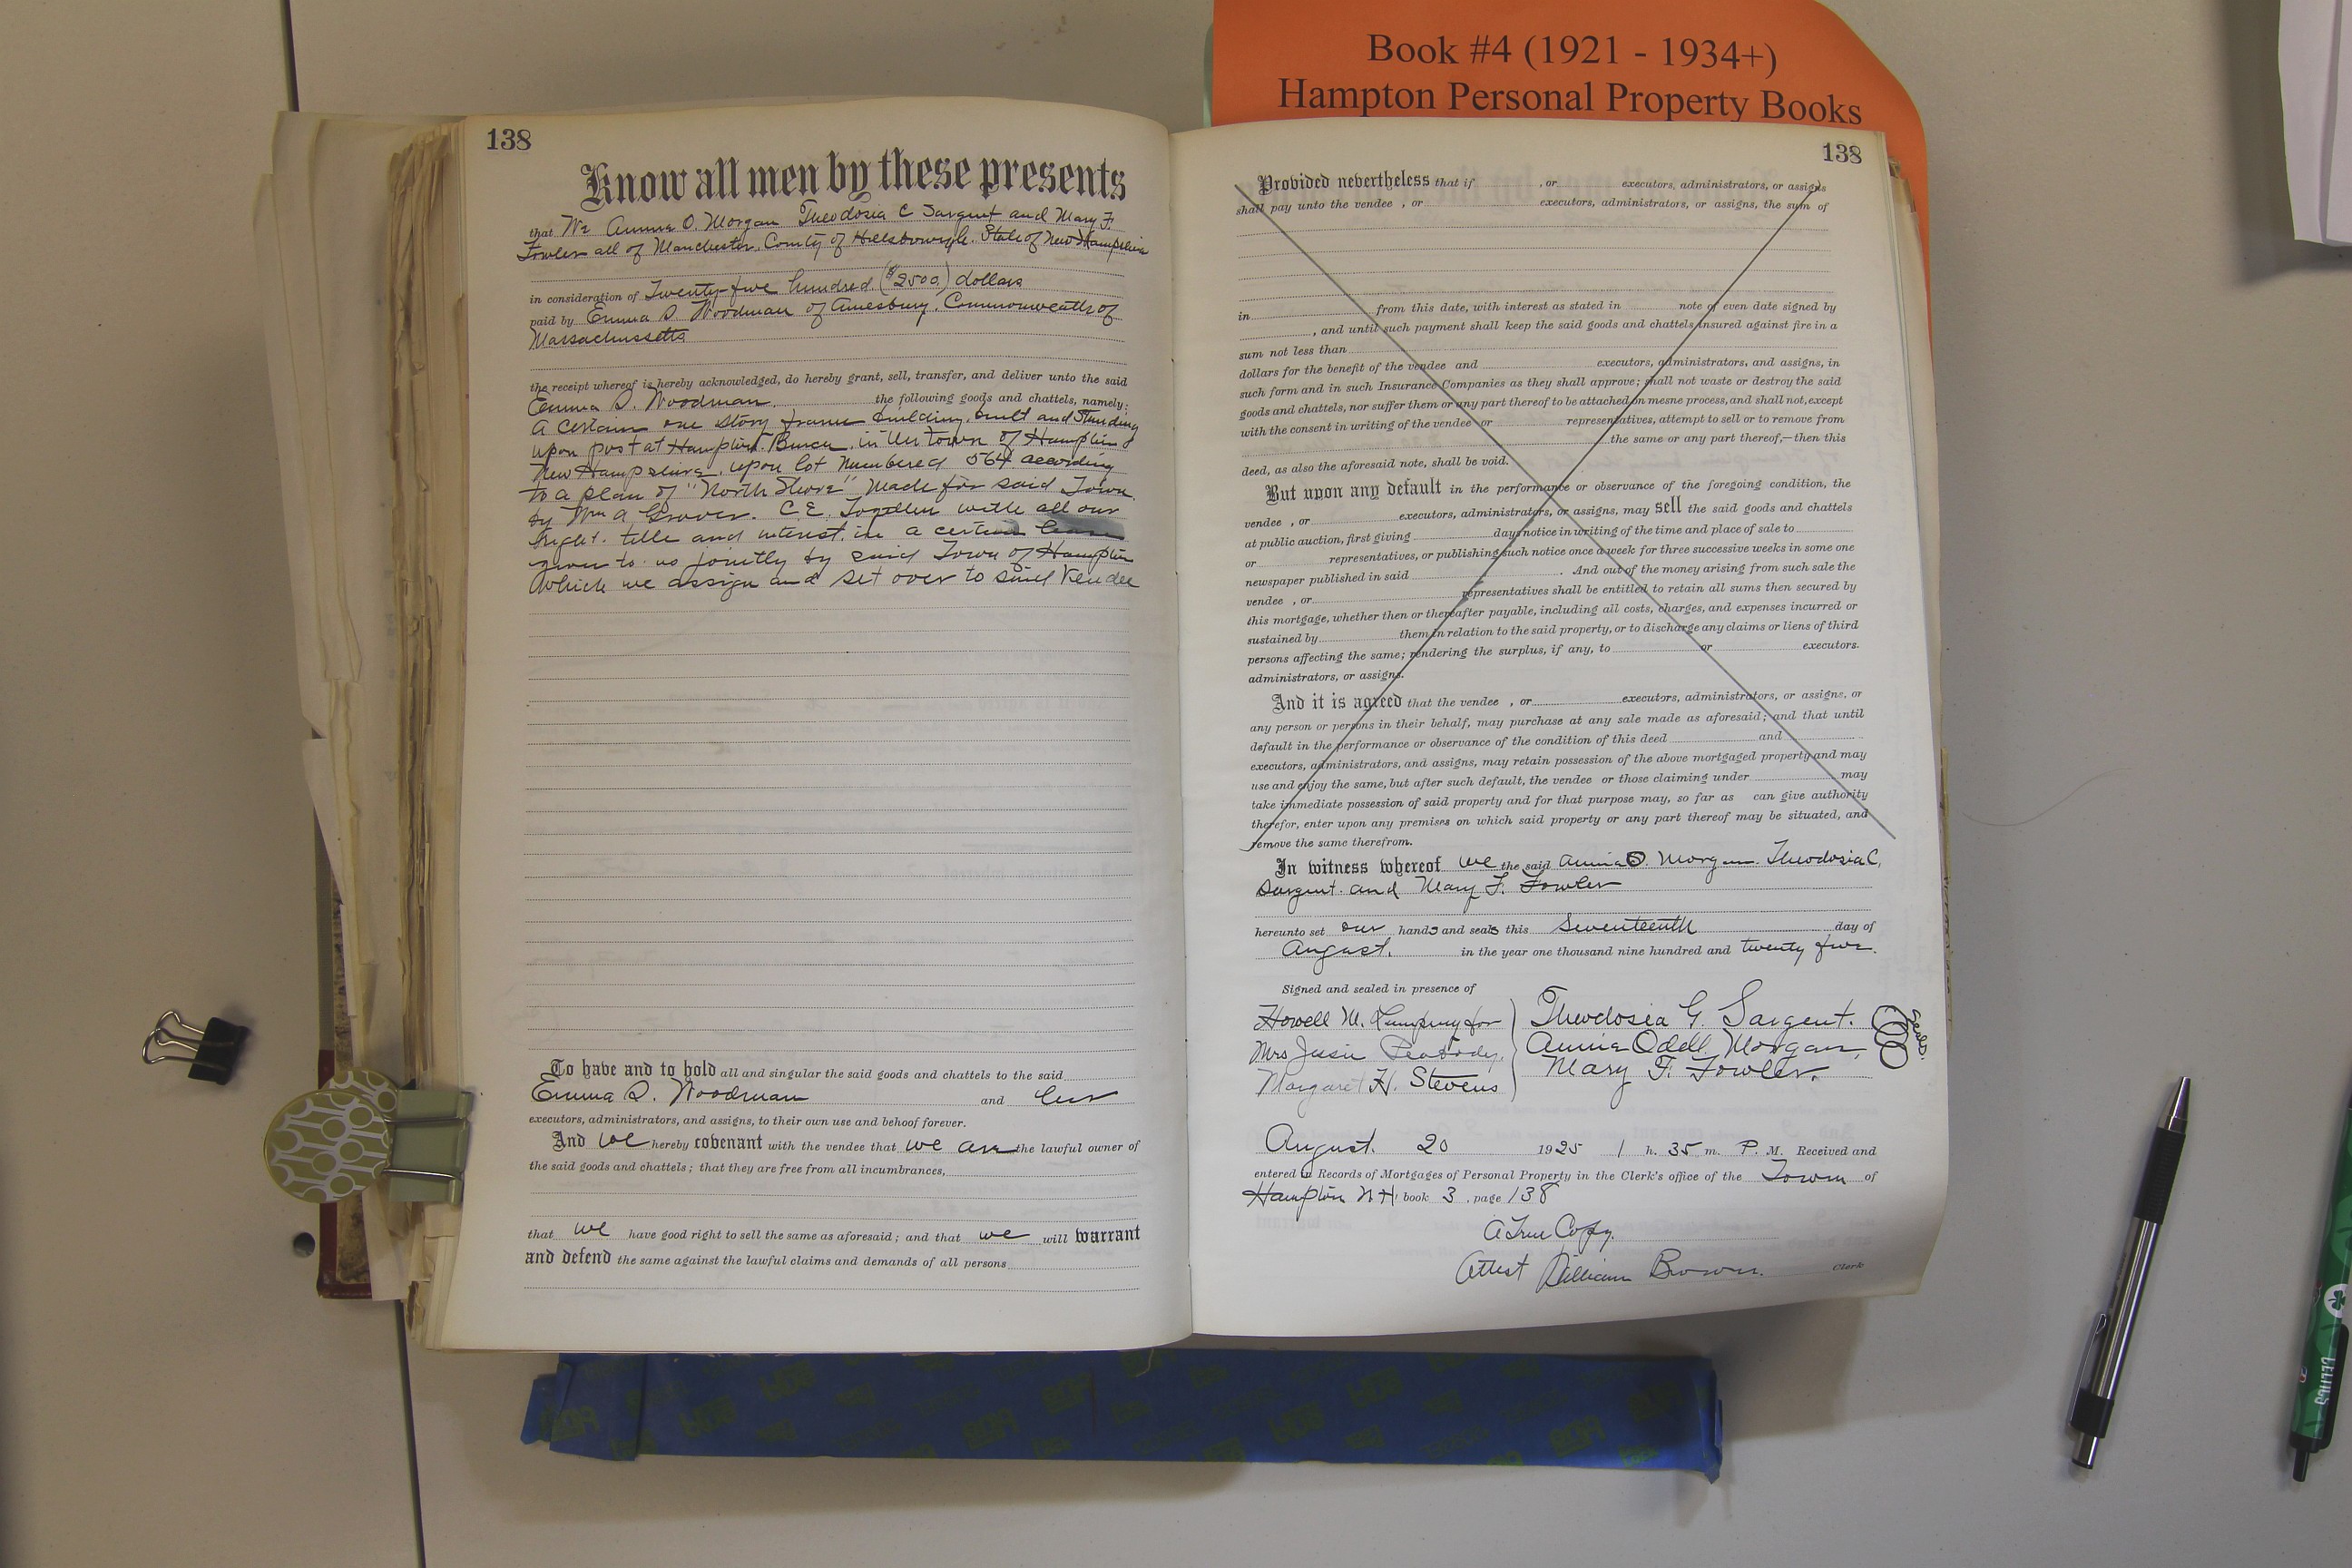 Book #4 (1921 - 1934+)
Hampton Personal Property Books
138
Know all men by these presents
that We Annie O. Morgan Theodosia C Sargent and Mary F.
Fowler all of Manchester, County of Hillsborough, State of New Hampshire
in consideration of Twenty-five hundred ($2500.) dollars
paid by Emma S. Woodman of Amesbury, Commonwealth of
Massachusetts
the receipt whereof is hereby acknowledged, do hereby grant, sell, transfer, and deliver unto the said
Emma S. Woodman the following goods and chattels, namely:
A certain one story frame building, built and standing
upon post at Hampton Beach, in the town of Hampton
New Hampshire, upon lot numbered 564 according
to a plan of "North Shore" made for said Town
by Wm A Grover. C.E. Together with all our
right, title and interest, in a certain lease
given to us jointly by said Town of Hampton
which we assign and set over to said Vendee
To have and to hold all and singular the said goods and chattels to the said
Emma S. Woodman and her
executors, administrators, and assigns, to their own use and behoof forever.
And we hereby covenant with the vendee that we are the lawful owner of
the said goods and chattels; that they are free from all incumbrances,
that we have good right to sell the same as aforesaid; and that we will warrant
and defend the same against the lawful claims and demands of all persons
138
Provided nevertheless that if , or executors, administrators, or assigns
shall pay unto the vendee , or executors, administrators, or assigns, the sum of
in from this date, with interest as stated in note of even date signed by
, and until such payment shall keep the said goods and chattels insured against fire in a
sum not less than
dollars for the benefit of the vendee and executors, administrators, and assigns, in
such form and in such Insurance Companies as they shall approve; shall not waste or destroy the said
goods and chattels, nor suffer them or any part thereof to be attached on mesne process, and shall not, except
with the consent in writing of the vendee or representatives, attempt to sell or to remove from
the same or any part thereof,—then this
deed, as also the aforesaid note, shall be void.
But upon any default in the performance or observance of the foregoing condition, the
vendee , or executors, administrators, or assigns, may sell the said goods and chattels
at public auction, first giving days notice in writing of the time and place of sale to
or representatives, or publishing such notice once a week for three successive weeks in some one
newspaper published in said . And out of the money arising from such sale the
vendee , or representatives shall be entitled to retain all sums then secured by
this mortgage, whether then or thereafter payable, including all costs, charges, and expenses incurred or
sustained by them in relation to the said property, or to discharge any claims or liens of third
persons affecting the same; rendering the surplus, if any, to or executors.
administrators, or assigns.
And it is agreed that the vendee , or executors, administrators, or assigns, or
any person or persons in their behalf, may purchase at any sale made as aforesaid; and that until
default in the performance or observance of the condition of this deed and
executors, administrators, and assigns, may retain possession of the above mortgaged property and may
use and enjoy the same, but after such default, the vendee or those claiming under may
take immediate possession of said property and for that purpose may, so far as can give authority
therefor, enter upon any premises on which said property or any part thereof may be situated, and
remove the same therefrom.
In witness whereof we the said Annie O. Morgan Theodosia C,
Sargent and Mary F. Fowler
hereunto set our hands and seals this Seventeenth day of
August. in the year one thousand nine hundred and twenty five.
Signed and sealed in presence of
Howell M. Lamprey for
Mrs Josie Peabody,
Margaret H. Stevens
Theodosia G. Sargent.
Annie Odell Morgan,
Mary F. Fowler.
Seals.
August. 20 1925 1 h. 35 m. P. M. Received and
entered in Records of Mortgages of Personal Property in the Clerk's office of the Town of
Hampton NH book 3, page 138
A True Copy.
Attest William Brown. Clerk
CELTICS